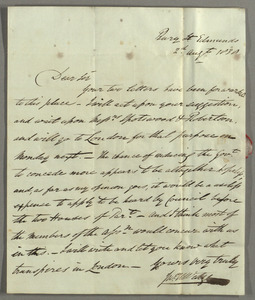 Bury St Edmunds
2d Augt 18
Dear Sir
Your two letters have been forwarded
to this place – I will act upon your suggestion
and wait upon Messrs Spotiswood & Robertson
and will go to London for that purpose on
Monday next – The chance of inducing the Govt
to concede more appears to be altogether
and, as far as my opinion goes, it would be a useless
expense to apply to be heard by Council before
the two Houses of Part – and I think most of
the members of the assn would concur with us
in this. – I will write and let you know what
transpires in London –
Yours very truly